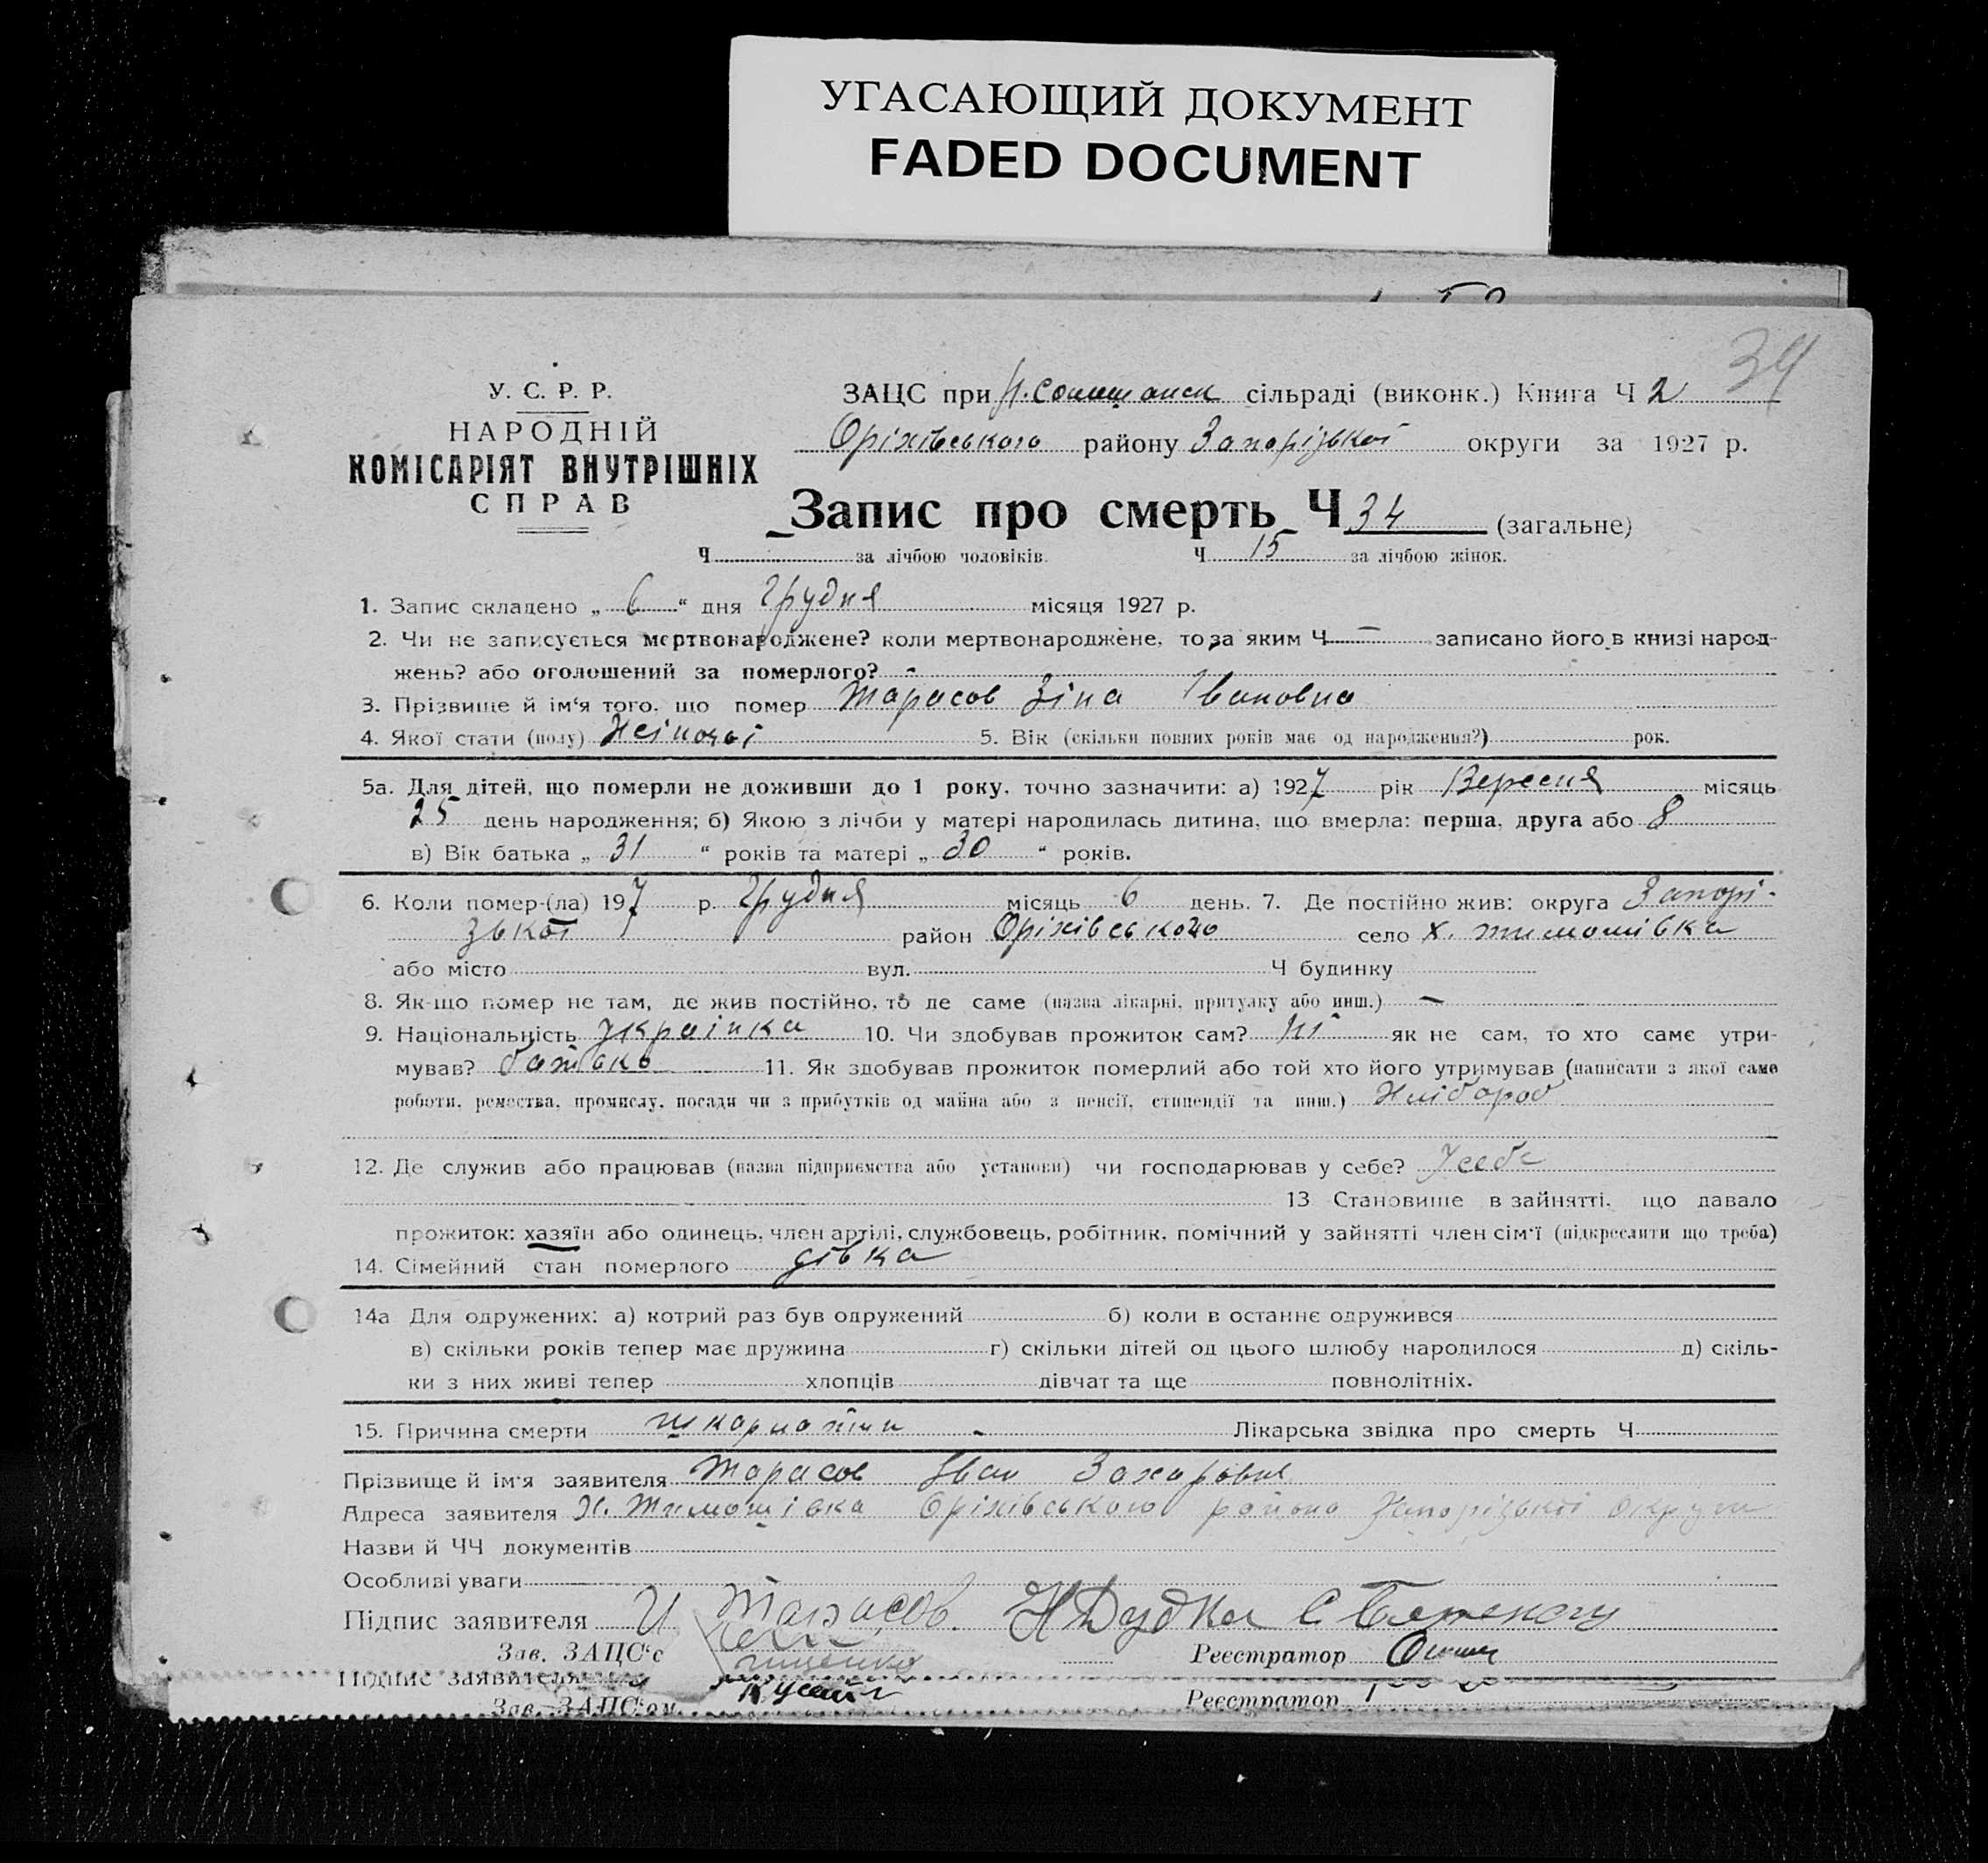 УГАСАЮЩИЙ ДОКУМЕНТ
FADED DOCUMENT
34
У. С. Р. Р.
НАРОДНІЙ
КОМІСАРІЯТ ВНУТРІШНІХ
СПРАВ
ЗАЦС при сільраді (виконк.) Книга Ч 2
Оріхівського району Запорізької округи за 1927 р.
Запис про смерть Ч 34 (загальне)
Ч за лічбою чоловіків. Ч 15 за лічбою жінок.
1. Запис складено „ 6 “ дня Грудня місяця 1927 р.
2. Чи не записується мертвонароджене? коли мертвонароджене, то за яким Ч — записано його в книзі народ-
жень? або оголошений за померлого? -
3. Прізвище й ім‘я того, що помер Тарасов Зіна Івановна
4. Якої стати (полу) Жіночої 5. Вік (скільки повних років має од народження?) рок.
5а. Для дітей, що померли не доживши до 1 року, точно зазначити: а) 1927 рік Вересня місяць
25 день народження; б) Якою з лічби у матері народилась дитина, що вмерла: перша, друга або 8
в) Вік батька „ 31 “ років та матері „ 30 “ років.
6. Коли помер-(ла) 197 р. Грудня місяць 6 день. 7. Де постійно жив: округа Запорі-
зької район Оріхівського село х. Тимошівка
або місто вул. Ч будинку
8. Як-що помер не там, де жив постійно, то де саме (назва лікарні, притулку або инш.) —
9. Національність Українка 10. Чи здобував прожиток сам? Ні як не сам, то хто саме утри-
мував? батько 11. Як здобував прожиток померлий або той хто його утримував (написати з якої саме
роботи, ремества, промислу, посади чи з прибутків од майна або з пенсії, стипендії та инш.) Хлібороб
12. Де служив або працював (назва підприємства або установи) чи господарював у себе? У себе
13 Становище в зайнятті, що давало
прожиток: хазяїн або одинець, член артілі, службовець, робітник, помічний у зайнятті член сім‘ї (підкреслити що треба)
14. Сімейний стан померлого дівка
14а Для одружених: а) котрий раз був одружений б) коли в останнє одружився
в) скільки років тепер має дружина г) скільки дітей од цього шлюбу народилося д) скіль-
ки з них живі тепер хлопців дівчат та ще повнолітніх.
15. Причина смерти шкарлатіни - Лікарська звідка про смерть Ч
Прізвище й ім‘я заявителя Тарасов Іван
Адреса заявителя Х. Тимошівка Оріхівського району Запорізької округи
Назви й ЧЧ документів
Особливі уваги
Підпис заявителя И Тарасов. Н Дудка
Зав. ЗАЦС‘с Реєстратор
Підпис заявителя
Зав. ЗАЦС‘ом Реєстратор